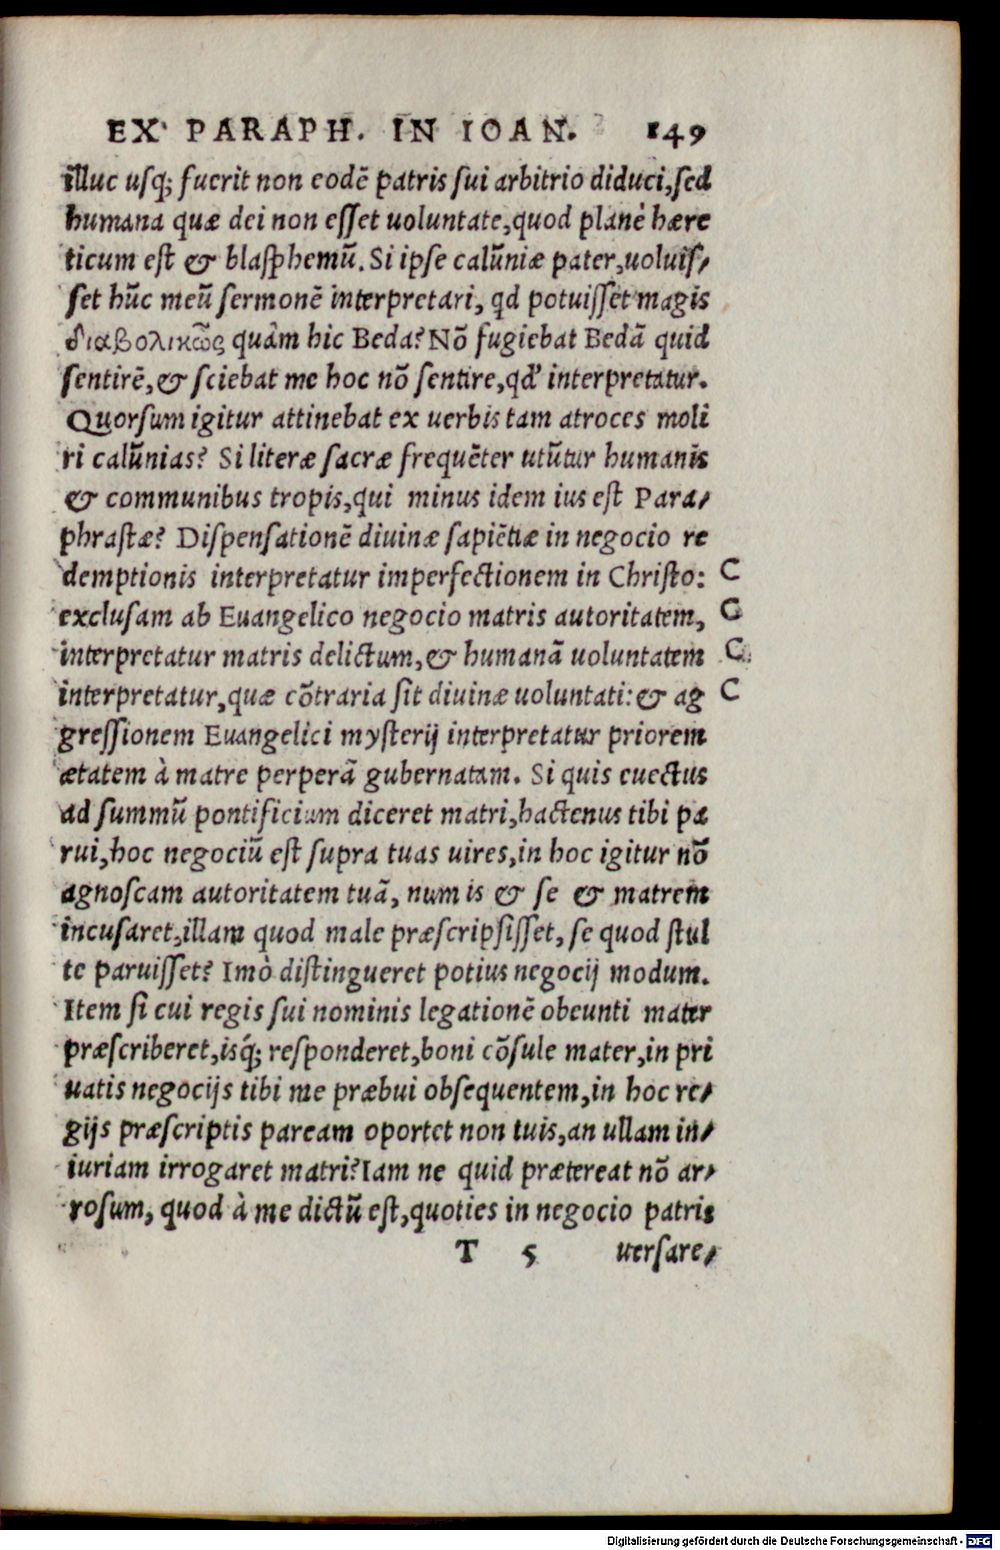 EX PARAPH. IN IOAN. 149
illuc usq; fuerit non eodē patris sui arbitrio diduci, sed
humana quæ dei non esset uoluntate, quod planè hære
ticum est & blasphemū. Si ipse calūniæ pater, uoluis-
set hūc meū sermonē interpretari, qd potuisset magis
διαβολικῶς quàm hic Beda? Nō fugiebat Bedā quid
sentirē, & sciebat me hoc nō sentire, qd' interpretatur.
Quorsum igitur attinebat ex uerbis tam atroces moli
ri calūnias? Si literæ sacræ frequēter utūtur humanis
& communibus tropis, qui minus idem ius est Para-
phrastæ? Dispensationē diuinæ sapiētiæ in negocio re
demptionis interpretatur imperfectionem in Christo: C
exclusam ab Euangelico negocio matris autoritatem, C
interpretatur matris delictum, & humanā uoluntatem C
interpretatur, quæ cōtraria sit diuinæ uoluntati: & ag C
gressionem Euangelici mysterij interpretatur priorem
ætatem à matre perperā gubernatam. Si quis euectus
ad summū pontificium diceret matri, hactenus tibi pa
rui, hoc negociū est supra tuas uires, in hoc igitur nō
agnoscam autoritatem tuā, num is & se & matrem
incusaret, illam quod male præscripsisset, se quod stul
te paruisset? Imò distingueret potius negocij modum.
Item si cui regis sui nominis legationē obeunti mater
præscriberet, isq́; responderet, boni cōsule mater, in pri
uatis negocijs tibi me præbui obsequentem, in hoc re-
gijs præscriptis paream oportet non tuis, an ullam in-
iuriam irrogaret matri? Iam ne quid prætereat nō ar-
rosum, quod à me dictū est, quoties in negocio patris
T 5 uersare-
Digitalisierung gefördert durch die Deutsche Forschungsgemeinschaft - DFG